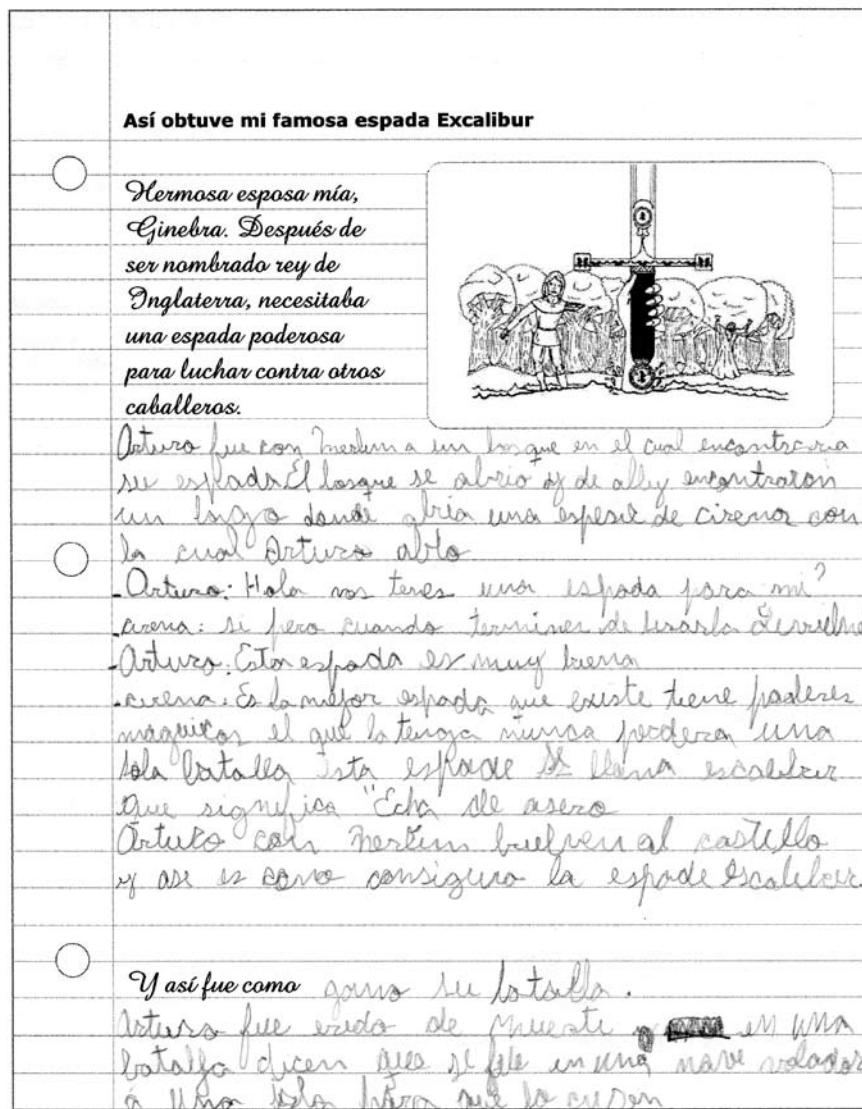 Así obtuve mi famosa espada Excalibur
Hermosa esposa mía,
Ginebra. Después de
ser nombrado rey de
Inglaterra, necesitaba
una espada poderosa
para luchar contra otros
caballeros.
Arturo fue con Merlin a un bosque en el cual encontraria
su espada El bosque se abrio y de alley encontraron
un lago donde abria una espesie de cirena con
la cual Arturo ablo
-Arturo: Hola vos tenes una espada para mi?
-cirena: si pero cuando termines de usarla
-Arturo: Esta espada es muy buena
-cirena: Es la mejor espada que existe tiene poderes
maguicos el que la tenga nunca perdera una
sola batalla esta espade se llama escalibur
que significa "Echa de asero
Arturo con Merlin buelven al castillo
y asi es como consiguio la espade escalibur.
Y así fue como gano su batalla.
Arturo fue erido de muerte en una
batalla dicen que se fue en una nave volador
a una isla para que lo curen